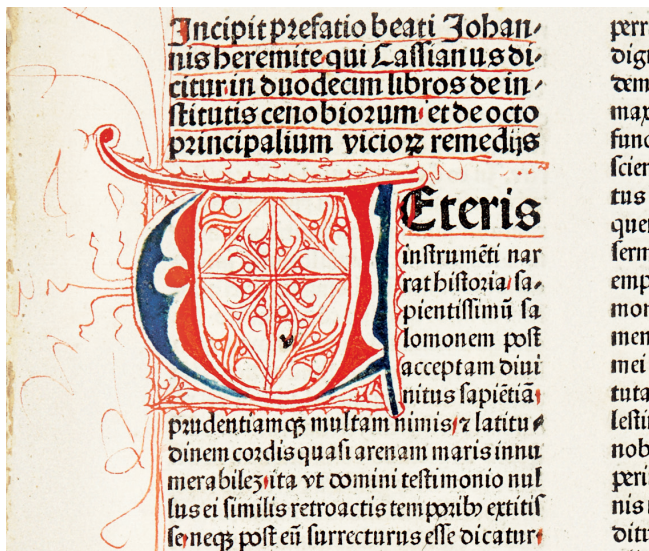 Incipit prefatio beati Johan-
nis heremite qui Caſſianus di-
citur in duodecim libros de in-
ſtitutis cenobiorum· et de octo
principalium vicioꝝ remedijs
VEteris
inſtrumēti nar
rat hiſtoria ſa-
pientiſſimū ſa
lomonem poſt
acceptam diui
nitus ſapiētiā·
prudentiamqꝫ multam nimis/ ⁊ latitu-
dinem cordis quaſi arenam maris innu
merabileꝫ· ita vt domini teſtimonio nul
lus ei ſimilis retroactis temporibꝰ extitiſ
ſe· neqꝫ poſt eū ſurrecturus eſſe dicatur·
perr
dign
dem
max
func
ſcien
tus
que
ſerm
emp
mon
men
mei
tuta
leſti
nob
peri
nis
ditu